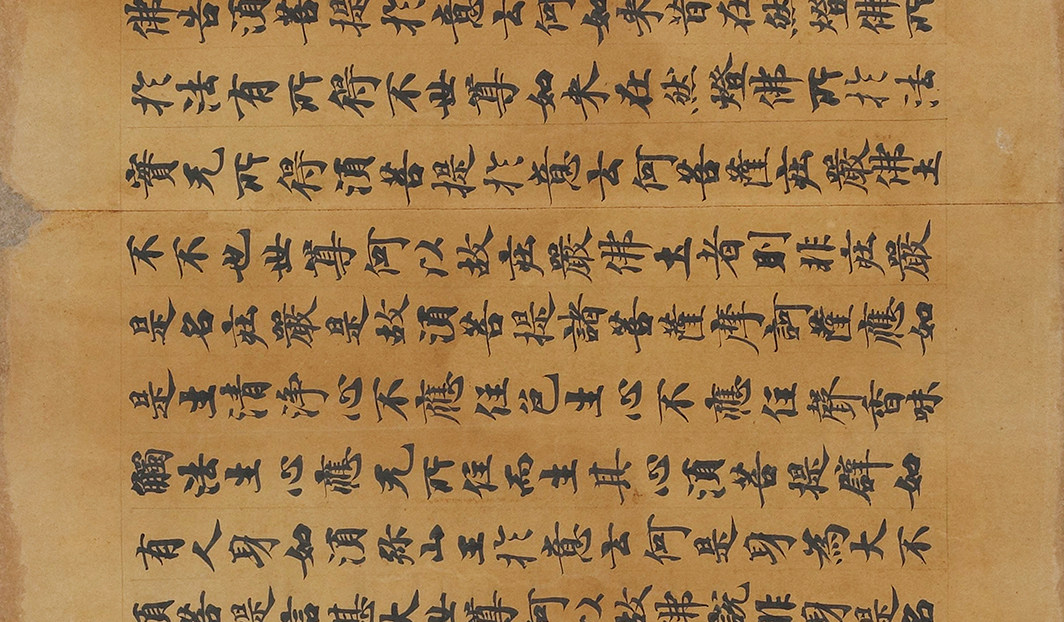 佛告須菩提於意云何如來昔在然燈佛所
於法有所得不世尊如来在然燈佛所於法
實无所得須菩提於意云何菩薩莊嚴佛土
不不也世尊何以故莊嚴佛土者則非莊嚴
是名莊嚴是故須菩提諸菩薩摩訶薩應如
是生清淨心不應住色生心不應住聲香味
觸法生心應无所住而生其心須菩提譬如
有人身如須弥山王於意云何是身為大不
須菩提言甚大世尊何以故佛說非身是名